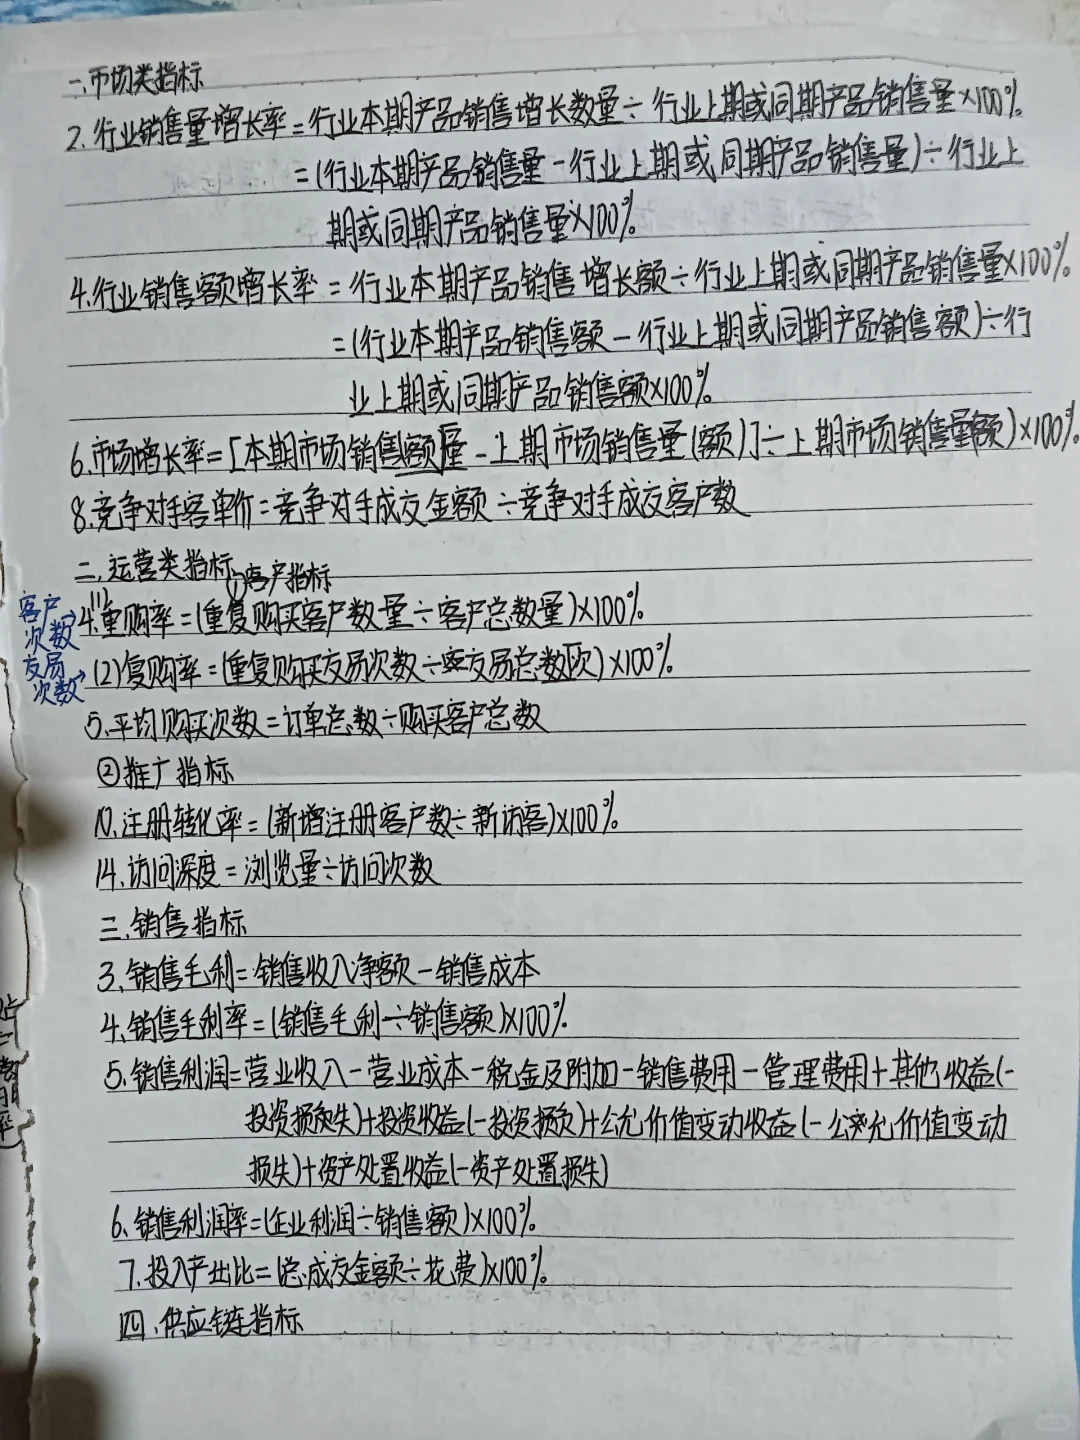 一.市场类指标
2.行业销售量增长率=行业本期产品销售增长数量÷行业上期或同期产品销售量×100%
=(行业本期产品销售量-行业上期或同期产品销售量)÷行业上
期或同期产品销售量×100%
4.行业销售额增长率=行业本期产品销售增长额÷行业上期或同期产品销售量×100%
=(行业本期产品销售额-行业上期或同期产品销售额)÷行
业上期或同期产品销售额×100%
6.市场增长率=[本期市场销售(额)量-上期市场销售量(额)]÷上期市场销售量(额)×100%
8.竞争对手客单价=竞争对手成交金额÷竞争对手成交客户数
二.运营类指标
①客户指标
客户次数→
4.(1)重购率=(重复购买客户数量÷客户总数量)×100%
交易次数→
(2)复购率=(重复购买交易次数÷交易总次数)×100%
5.平均购买次数=订单总数÷购买客户总数
②推广指标
10.注册转化率=(新增注册客户数÷新访客)×100%
14.访问深度=浏览量÷访问次数
三.销售指标
3.销售毛利=销售收入净额-销售成本
4.销售毛利率=(销售毛利÷销售额)×100%
5.销售利润=营业收入-营业成本-税金及附加-销售费用-管理费用+其他收益(-
投资损失)+投资收益(-投资损负)+公允价值变动收益(-公允价值变动
损失)+资产处置收益(-资产处置损失)
6.销售利润率=(企业利润÷销售额)×100%
7.投入产出比=(总成交金额÷花费)×100%
四.供应链指标